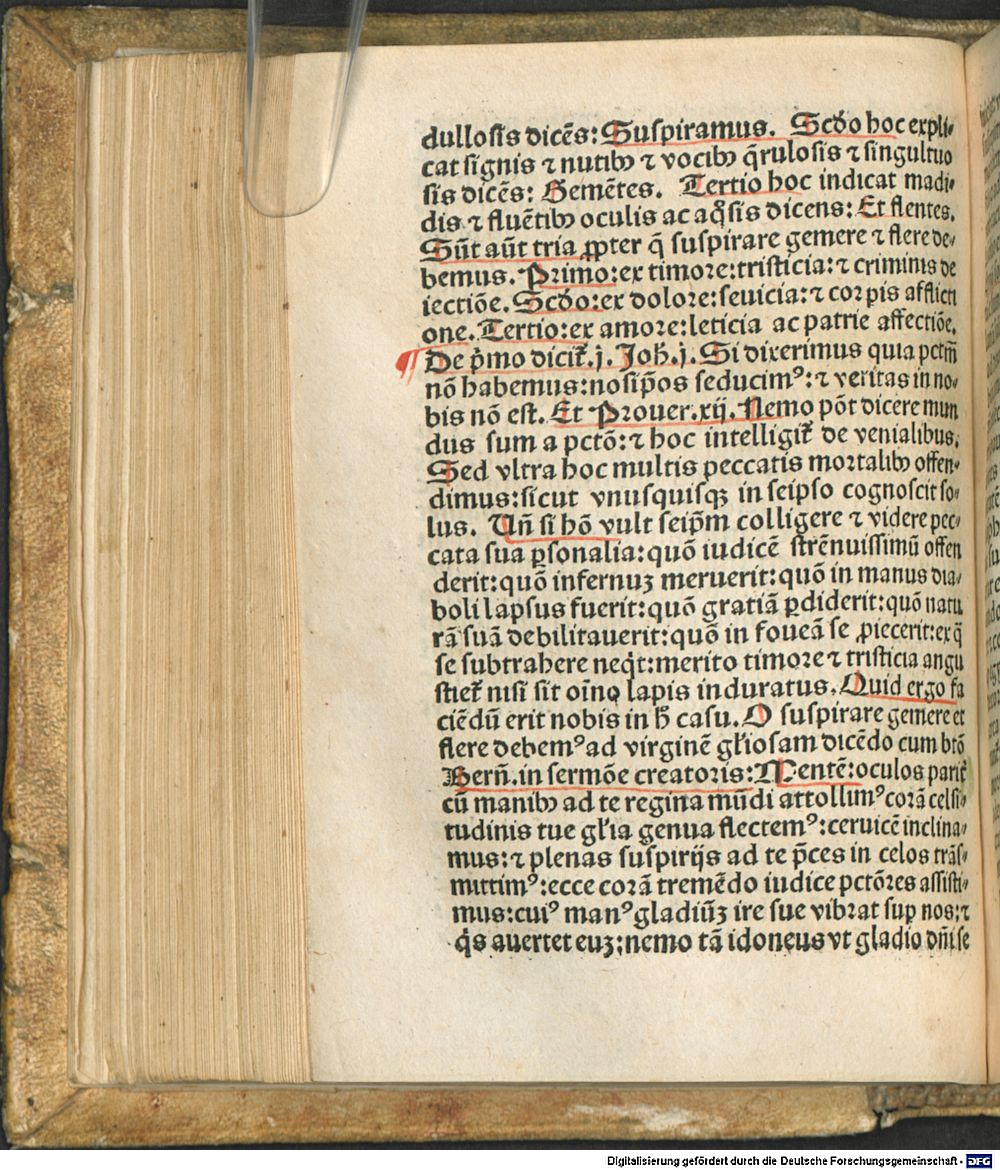 dullosis dicēs: Suspiramus. Scdo hoc expli-
cat signis ⁊ nutibꝫ ⁊ vocibꝫ q̄rulosis ⁊ singultuo
sis dicēs: Gemētes. Tertio hoc indicat madi-
dis ⁊ fluētibꝫ oculis ac aq̄sis dicens: Et flentes.
Sūt aūt tria ꝓpter q̄ suspirare gemere ⁊ flere de-
bemus. Primo: ex timore: tristicia: ⁊ criminis de
iectiōe. Scdo: ex dolore: seuicia: ⁊ corꝑis afflicti
one. Tertio: ex amore: leticia ac patrie affectiōe.
¶ De p̄mo dicit᷑. j. Joh̄. j. Si dixerimus quia pctm̄
nō habemus: nosip̄os seducimꝰ: ⁊ veritas in no-
bis nō est. Et Prouer. xij. Nemo pōt dicere mun
dus sum a pctō: ⁊ hoc intelligit᷑ de venialibus.
Sed vltra hoc multis peccatis mortalibꝫ offen-
dimus: sicut vnusquisqꝫ in seipso cognoscit so-
lus. Un̄ si hō vult seip̄m colligere ⁊ videre pec-
cata sua ꝑsonalia: quō iudicē strēnuissimū offen
derit: quō infernuꝫ meruerit: quō in manus dia-
boli lapsus fuerit: quō gratiā ꝑdiderit: quō natu
rā suā debilitauerit: quō in foueā se ꝓiecerit: ex q̄
se subtrahere neq̇t: merito timore ⁊ tristicia angu
stiet᷑ nisi sit oīno lapis induratus. Quid ergo fa
ciēdū erit nobis in h̄ casu. O suspirare gemere et
flere debemꝰ ad virginē gl'iosam dicēdo cum btō
Bern̄. in sermōe creatoris: Mentē: oculos parit᷑
cū manibꝫ ad te regina mūdi attollimꝰ corā celsi-
tudinis tue gl'ia genua flectemꝰ: ceruicē inclina-
mus: ⁊ plenas suspirijs ad te p̄ces in celos trās-
mittimꝰ: ecce corā tremēdo iudice pctōres assisti-
mus: cuiꝰ manꝰ gladiūꝫ ire sue vibrat suꝑ nos: ⁊
q̇s auertet euꝫ: nemo tā idoneus vt gladio dn̄i se
Digitalisierung gefördert durch die Deutsche Forschungsgemeinschaft - DFG